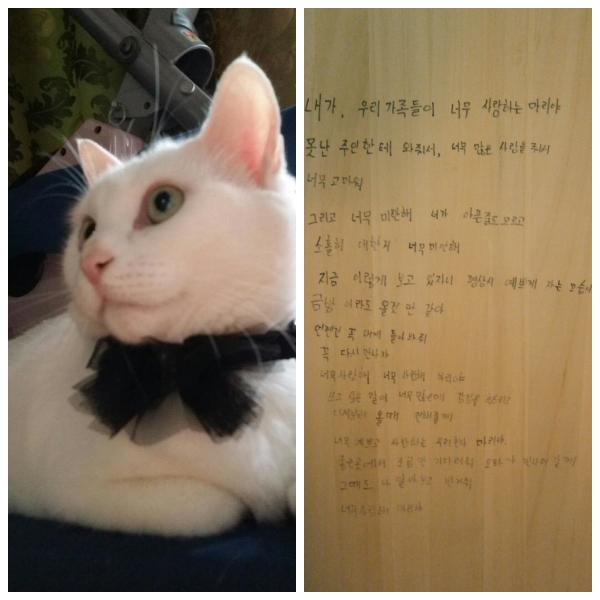 내가, 우리 가족들이 너무 사랑하는 마리야
못난 주인한테 와줘서, 너무 많은 사랑을 줘서
너무 고마워
그리고 너무 미안해 네가 아픈줄도 모르고
소홀히 대한거 너무 미안해
지금 이렇게 보고 있자니 평상시 예쁘게 자는 모습이
금방 이라도 올것만 같아
언젠간 꼭 내게 돌아와줘
꼭 다시 만나자
너무 사랑해 너무 사랑해 마리야
쓰고 싶은 말이 너무 많은데
올때 전해줄게
너무 예쁘고 사랑하는 우리 마리야.
좋은곳에서 조금만 기다려줘 오빠가
그때도 나 반겨줘